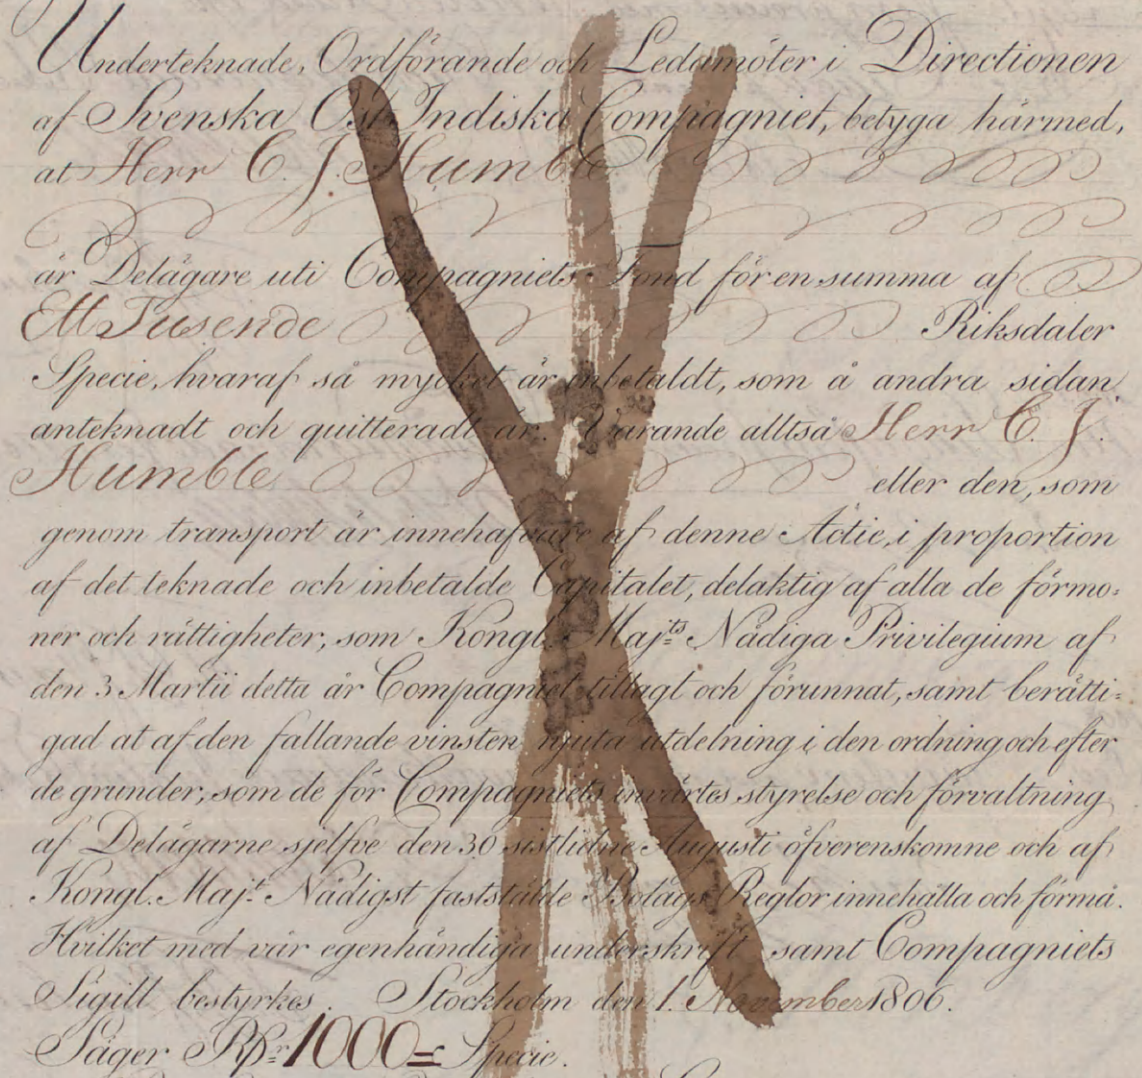 Underteknade, Ordförande och Ledamöter i Directionen
af Svenska Ost Indiska Compagniet, betyga härmed,
at Herr C. J. Humble
är Delägare uti Compagniets Fond för en summa af
Ett Tusende Riksdaler
Specie, hvaraf så mycket är inbetaldt, som å andra sidan
anteknadt och quitteradt är. Varande alltså Herr C. J.
Humble eller den, som
genom transport är innehafvare af denne Actie, i proportion
af det teknade och inbetalde Capitalet, delaktig af alla de förmo=
ner och rättigheter, som Kongl. Maj:ts Nådiga Privilegium af
den 3 Martii detta år Compagniet tillagt och förunnat, samt berätti=
gad at af den fallande vinsten njuta utdelning i den ordning och efter
de grunder, som de för Compagniets invärtes styrelse och förvaltning
af Delägarne sjelfve den 30 sistlidne Augusti öfverenskomne och af
Kongl. Maj:t Nådigst fastställde Bolags Reglor innehålla och förmå.
Hvilket med vår egenhändiga underskrift samt Compagniets
Sigill bestyrkes. Stockholm den 1. November 1806.
Säger RDr 1000= Specie.